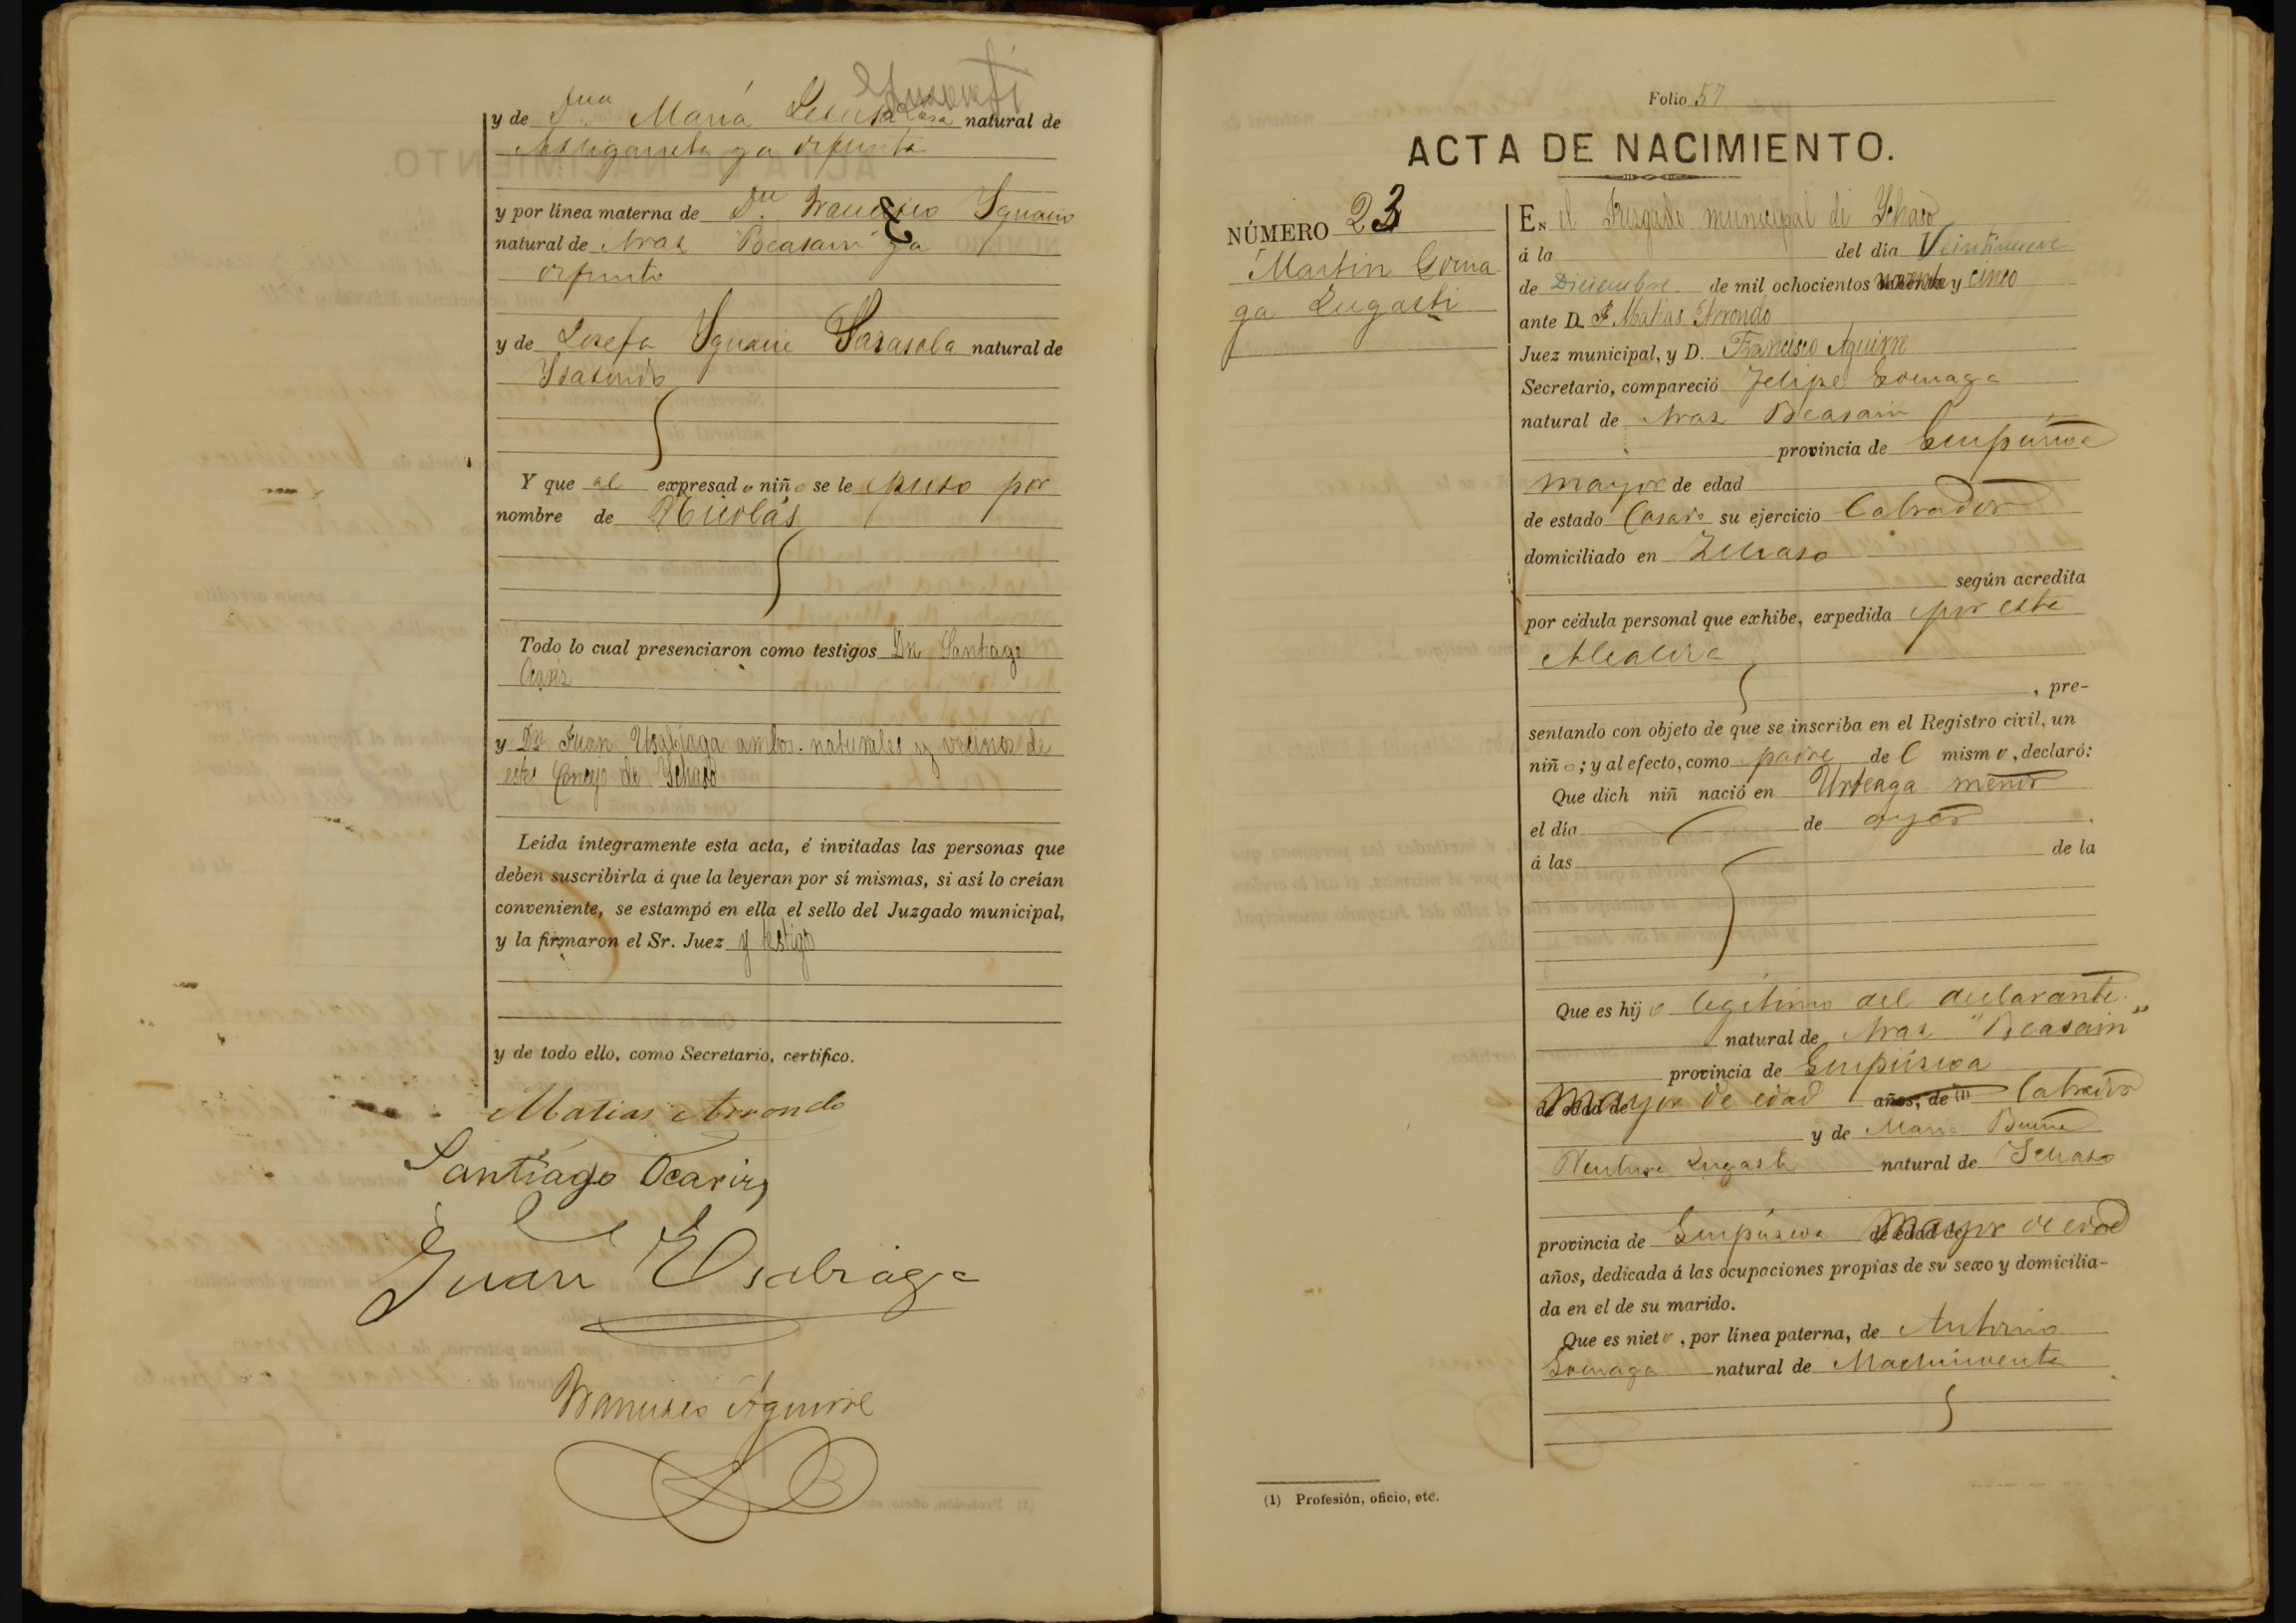 y de Dña María Lasa natural de
ya difunta
y por línea materna de Dn. Francisco Yguain
natural de Aras "Beasain" ya
difunto
y de Josefa Sarasola natural de
Y que al expresado niño se le puso por
nombre de Nicolás
Todo lo cual presenciaron como testigos Dn Santiago
Ocariz
y Dn Juan Usabiaga ambos naturales y vecinos de
este Concejo de Ychaso
Leída íntegramente esta acta, é invitadas las personas que
deben suscribirla á que la leyeran por sí mismas, si así lo creían
conveniente, se estampó en ella el sello del Juzgado municipal,
y la firmaron el Sr. Juez y testigo
y de todo ello, como Secretario, certifico.
Matias Arrondo
Santiago Ocariz
Juan Usabiaga
Francisco Aguirre
Folio 57
ACTA DE NACIMIENTO.
NÚMERO 23
Martin Goena
ga Lugasti
En el Juzgado municipal de Ychaso
á la del día Veintinueve
de Diciembre de mil ochocientos noventa y cinco
ante D. Matias Arrondo
Juez municipal, y D. Francisco Aguirre
Secretario, compareció Felipe Goenaga
natural de Aras Beasain
provincia de Guipúzcoa
mayor de edad
de estado Casado su ejercicio Labrador
domiciliado en Ychaso
según acredita
por cédula personal que exhibe, expedida por esta
Alcaldia
, pre-
sentando con objeto de que se inscriba en el Registro civil, un
niño; y al efecto, como padre del mismo, declaró:
Que dich niñ nació en Urteaga menor
el día de ayer
á las de la
Que es hijo legítimo del declarante
natural de Aras "Beasain"
provincia de Guipúzcoa
de edad de mayor de edad años, de (1) Labrador
y de Maria Buena
Ventura Lugasti natural de Ychaso
provincia de Guipúzcoa de edad de mayor de edad
años, dedicada á las ocupaciones propias de su sexo y domicilia-
da en el de su marido.
Que es nieto, por línea paterna, de Antonio
Goenaga natural de Machinventa
(1) Profesión, oficio, etc.